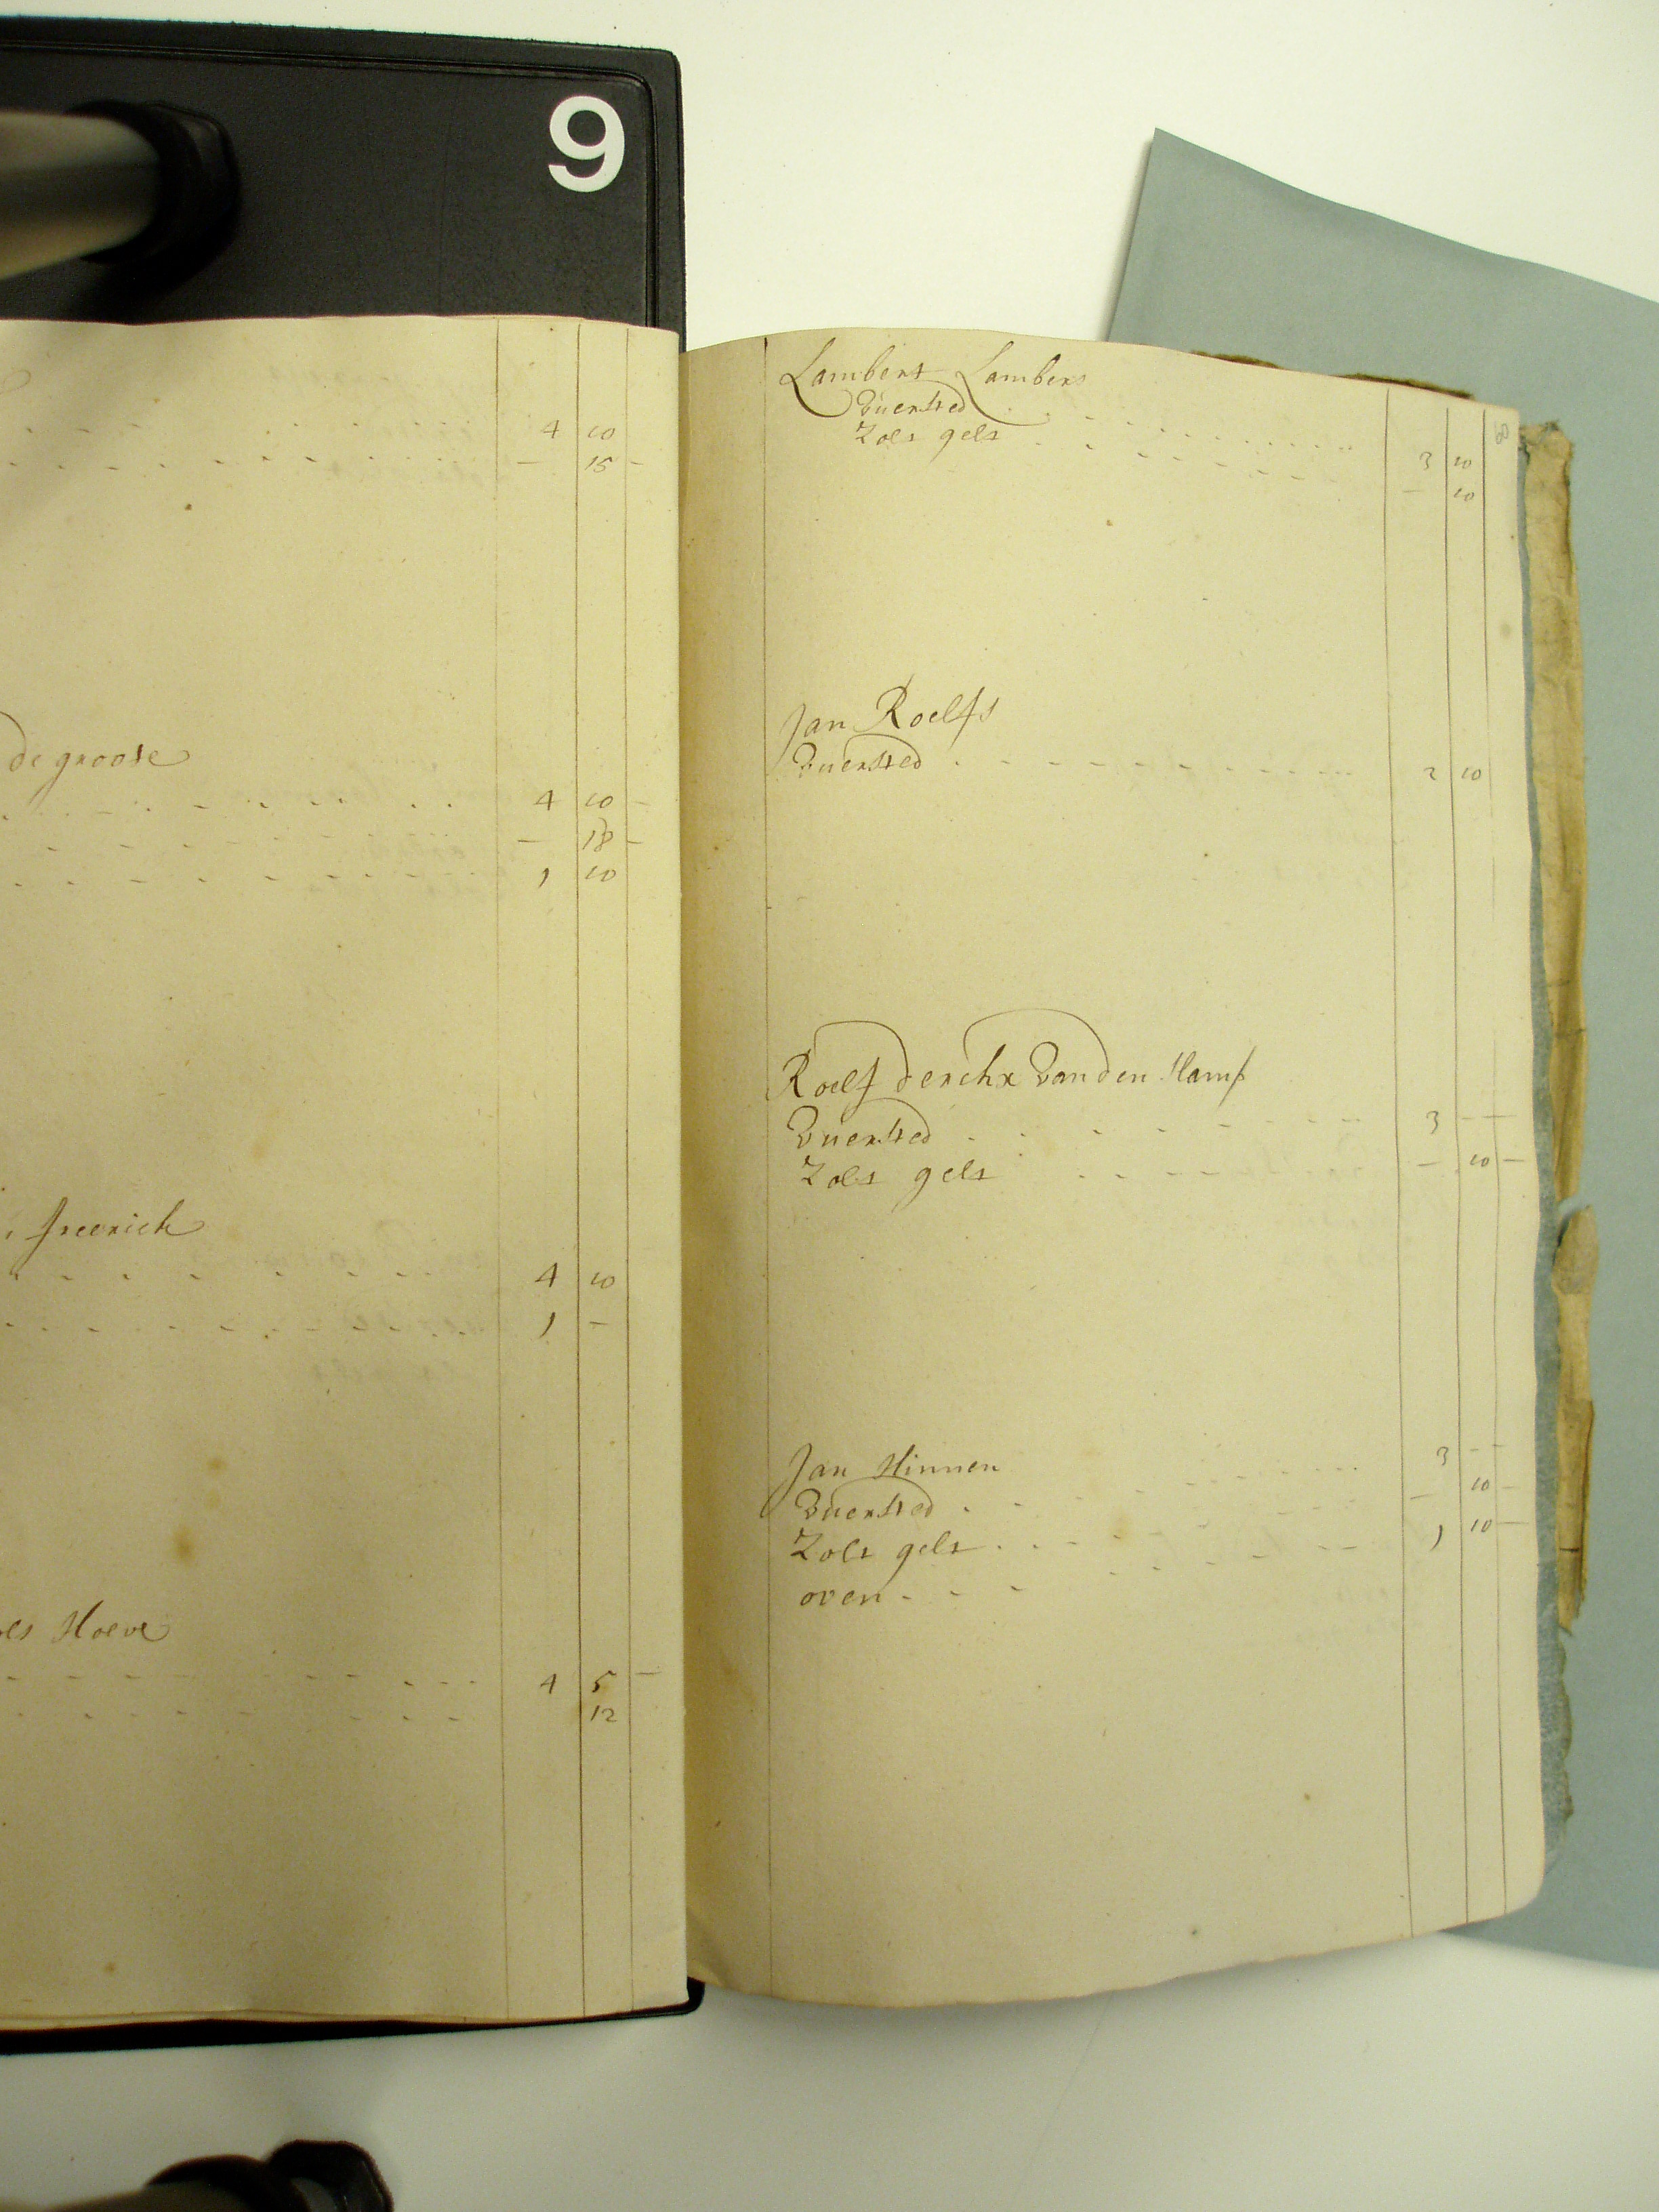 9
4 10
— 15 -
de groote
4 10 -
— 18 -
1 10
freerick
4 10
1 -
es Hoeve
4 5 —
12
Lambert Lambers
Vuersted 3 10
Zols gelt — 10
Jan Roelfs
Vuersted 2 10
Roelf derckx Van den Hamf
Vuersted 3 - —
Zols gelt — 10 —
Jan Hinnen
Vuersted 3 - -
Zols gelt — 10 -
oven 1 10 —